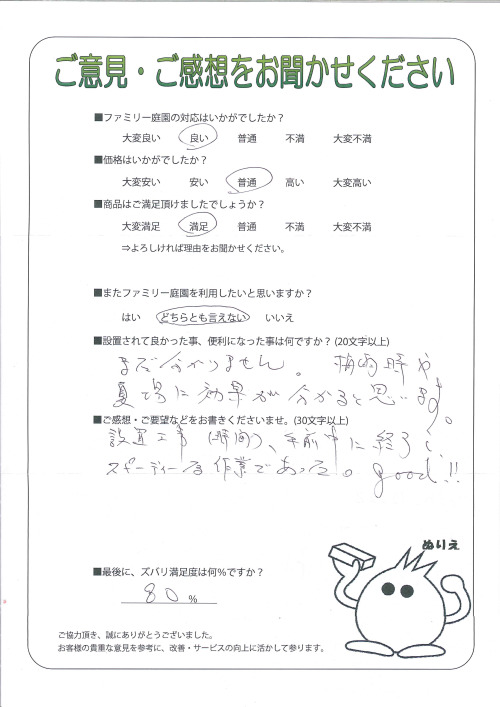 ご意見・ご感想をお聞かせください
■ファミリー庭園の対応はいかがでしたか？
大変良い 良い 普通 不満 大変不満
■価格はいかがでしたか？
大変安い 安い 普通 高い 大変高い
■商品はご満足頂けましたでしょうか？
大変満足 満足 普通 不満 大変不満
⇒よろしければ理由をお聞かせください。
■またファミリー庭園を利用したいと思いますか？
はい どちらとも言えない いいえ
■設置されて良かった事、便利になった事は何ですか？(20文字以上)
まだ分かりません。 梅雨時や
夏場に効果が分かると思います。
■ご感想・ご要望などをお書きくださいませ。(30文字以上)
設置工事（時間）、午前中に終了し、
スピーディーな作業であった。good!!
ぬりえ
■最後に、ズバリ満足度は何％ですか？
80 %
ご協力頂き、誠にありがとうございました。
お客様の貴重な意見を参考に、改善・サービスの向上に活かして参ります。